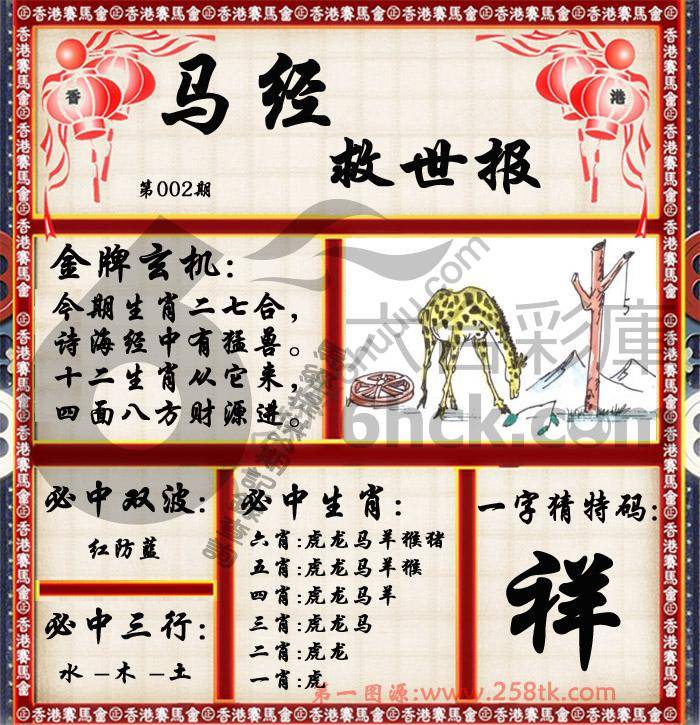 香港賽馬會
香
港
马经
救世报
第002期
金牌玄机:
今期生肖二七合,
诗海经中有猛兽。
十二生肖从它来,
四面八方财源进。
5
六合彩庫
6hck.com
必中双波:
红防蓝
必中三行:
水-木-土
必中生肖:
六肖:虎龙马羊猴猪
五肖:虎龙马羊猴
四肖:虎龙马羊
三肖:虎龙马
二肖:虎龙
一肖:虎
一字猜特码:
祥
第一图源:www.258tk.com